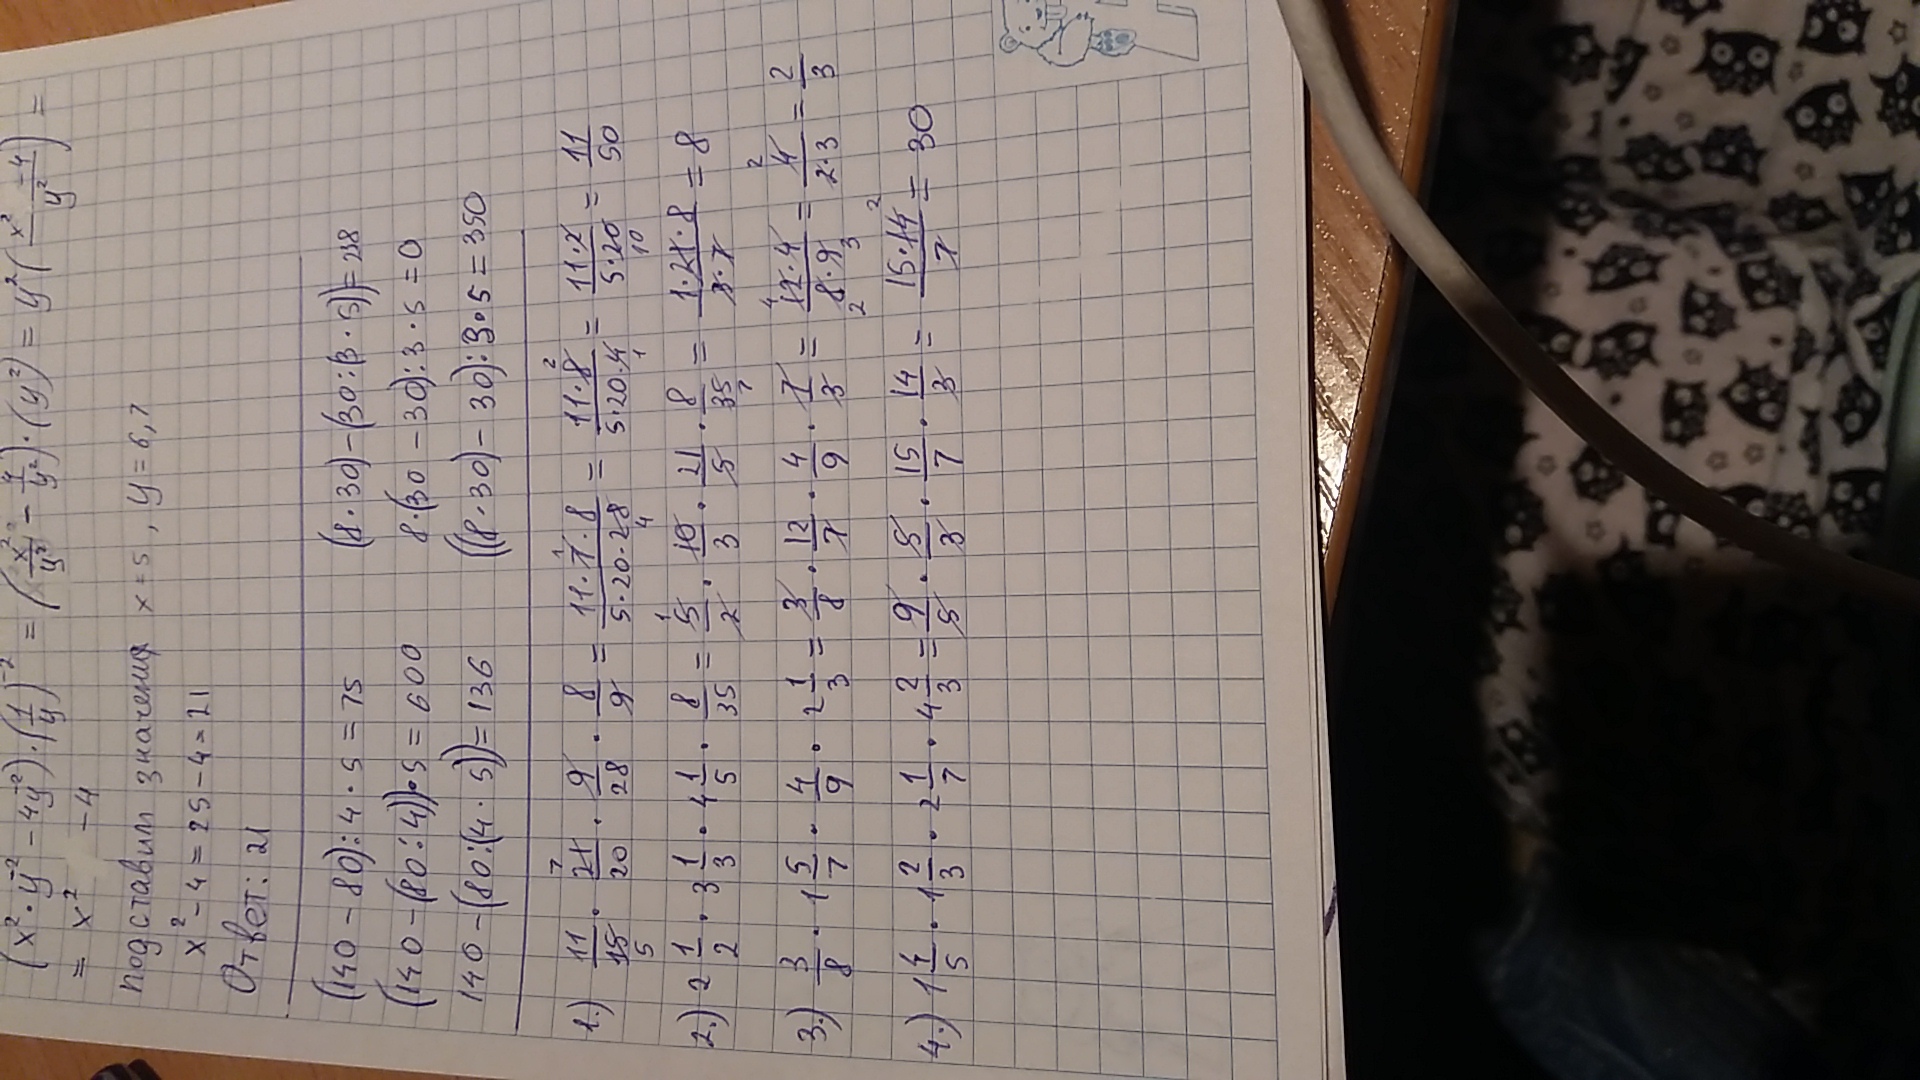 (x²·y⁻²-4y⁻²)·(1/y)⁻² = (x²/y² - 4/y²)·(y²) = y²(x²-4/y²) =
= x² - 4
подставим значения x=5, y=6,7
x²-4=25-4=21
Ответ: 21
(140-80):4·5=75 (8·30)-(30:(3·5))=238
(140-(80:4))·5=600 8·(30-30):3·5=0
140-(80:(4·5))=136 ((8·30)-30):3·5=350
1.) 11/15 5 · 7 21/20 · 9/28 · 8/9 = 11·7 1·8/5·20·28 4 = 11·8 2/5·20·4 1 = 11·2/5·20 10 = 11/50
2.) 2 1/2 · 3 1/3 · 4 1/5 · 8/35 = 1 5/2 · 10/3 · 21/5 · 8/35 7 = 1·21·8/3·7 = 8
3.) 3/8 · 1 5/7 · 4/9 · 2 1/3 = 3/8 · 12/7 · 4/9 · 7/3 = 4 12·4/8·9 2 3 = 2 4/2·3 = 2/3
4.) 1 4/5 · 1 2/3 · 2 1/7 · 4 2/3 = 9/5 · 5/3 · 15/7 · 14/3 = 15·14 2/7 = 30